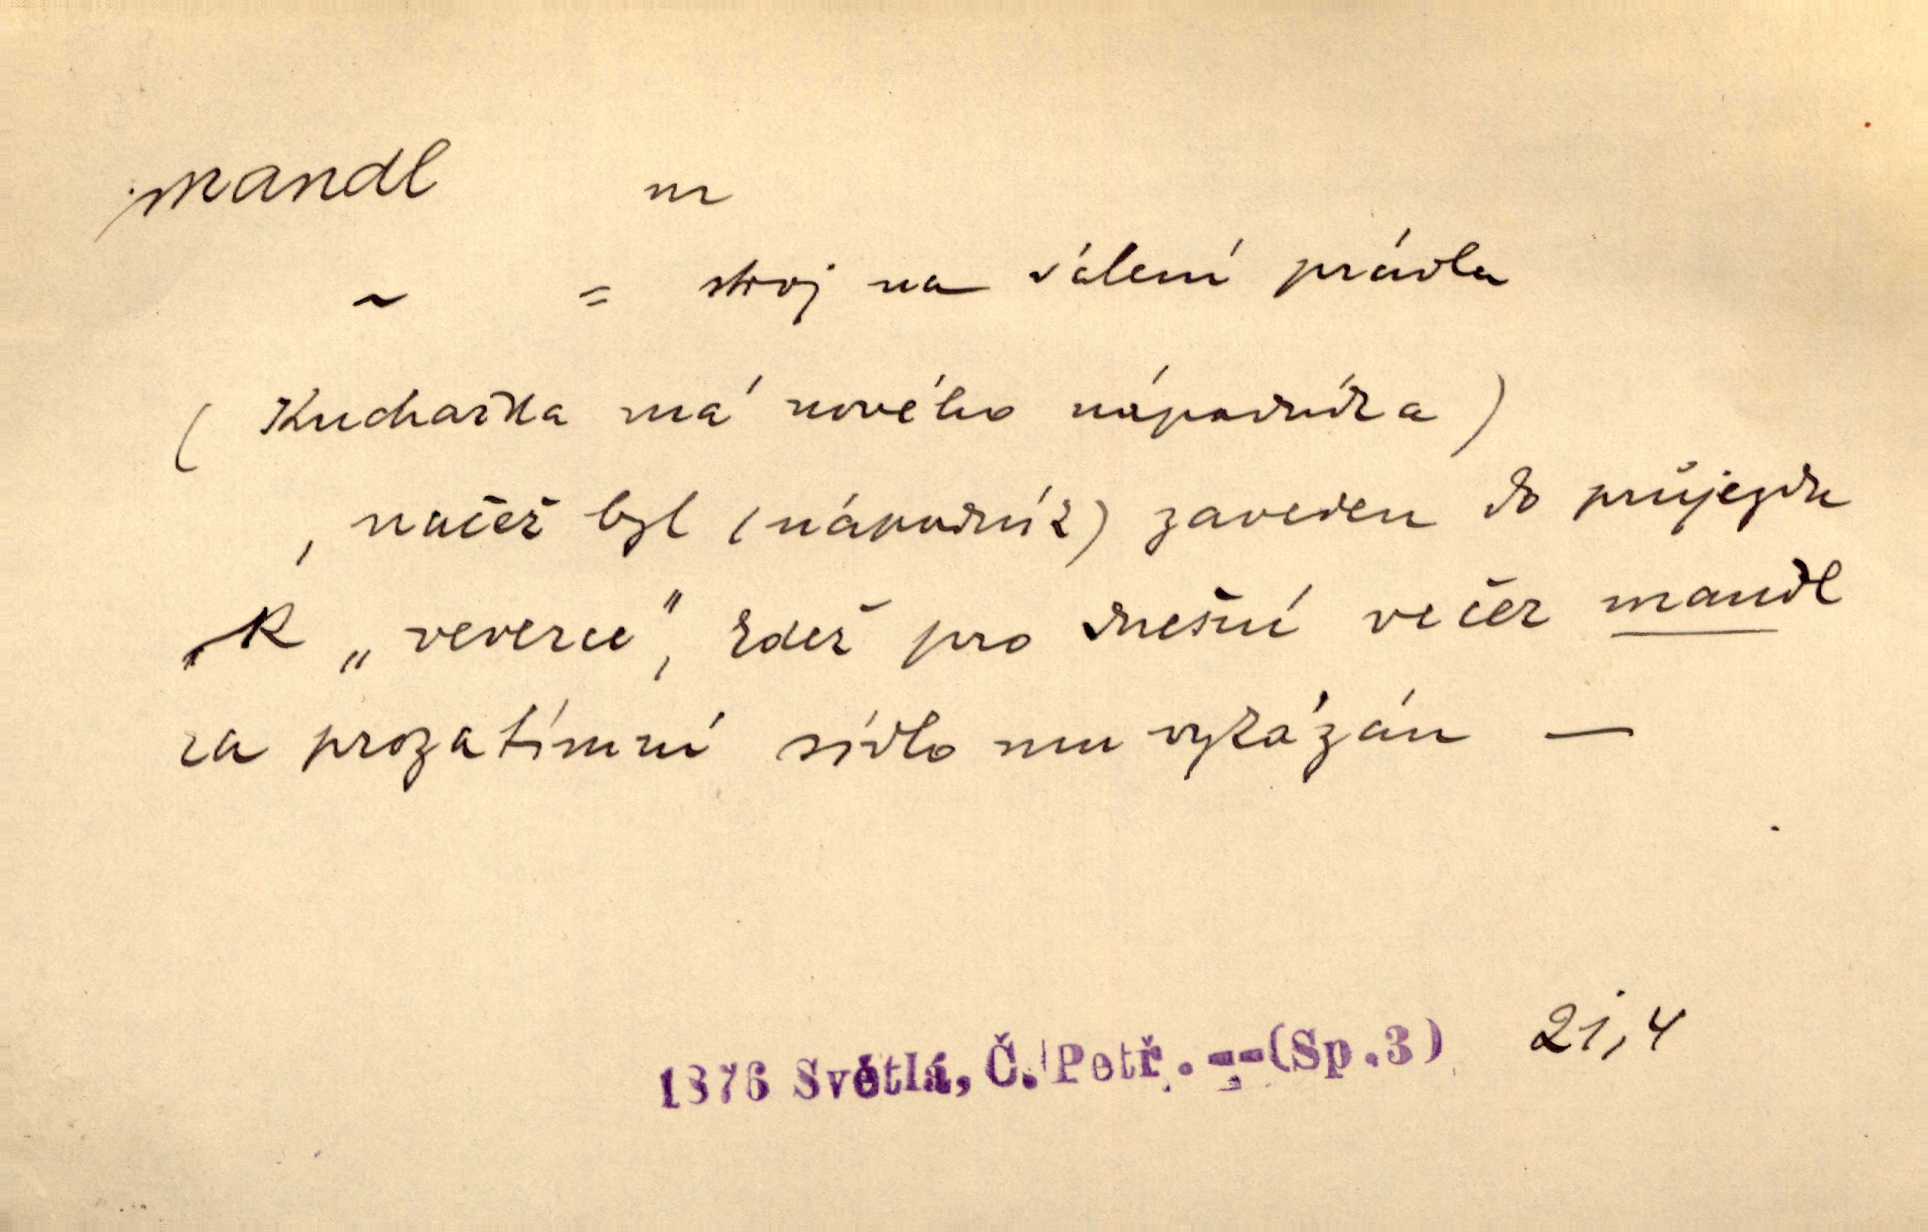 mandl m
~ = stroj na válení prádla
( Kuchařka má nového nápadníka )
, načež byl (nápadník) zaveden do průjezdu
k „veverce", kdež pro dnešní večer mandl
za prozatímní sídlo mu vykázán —
1876 Světlá, Č. Petř. -- (Sp.3) 21,4